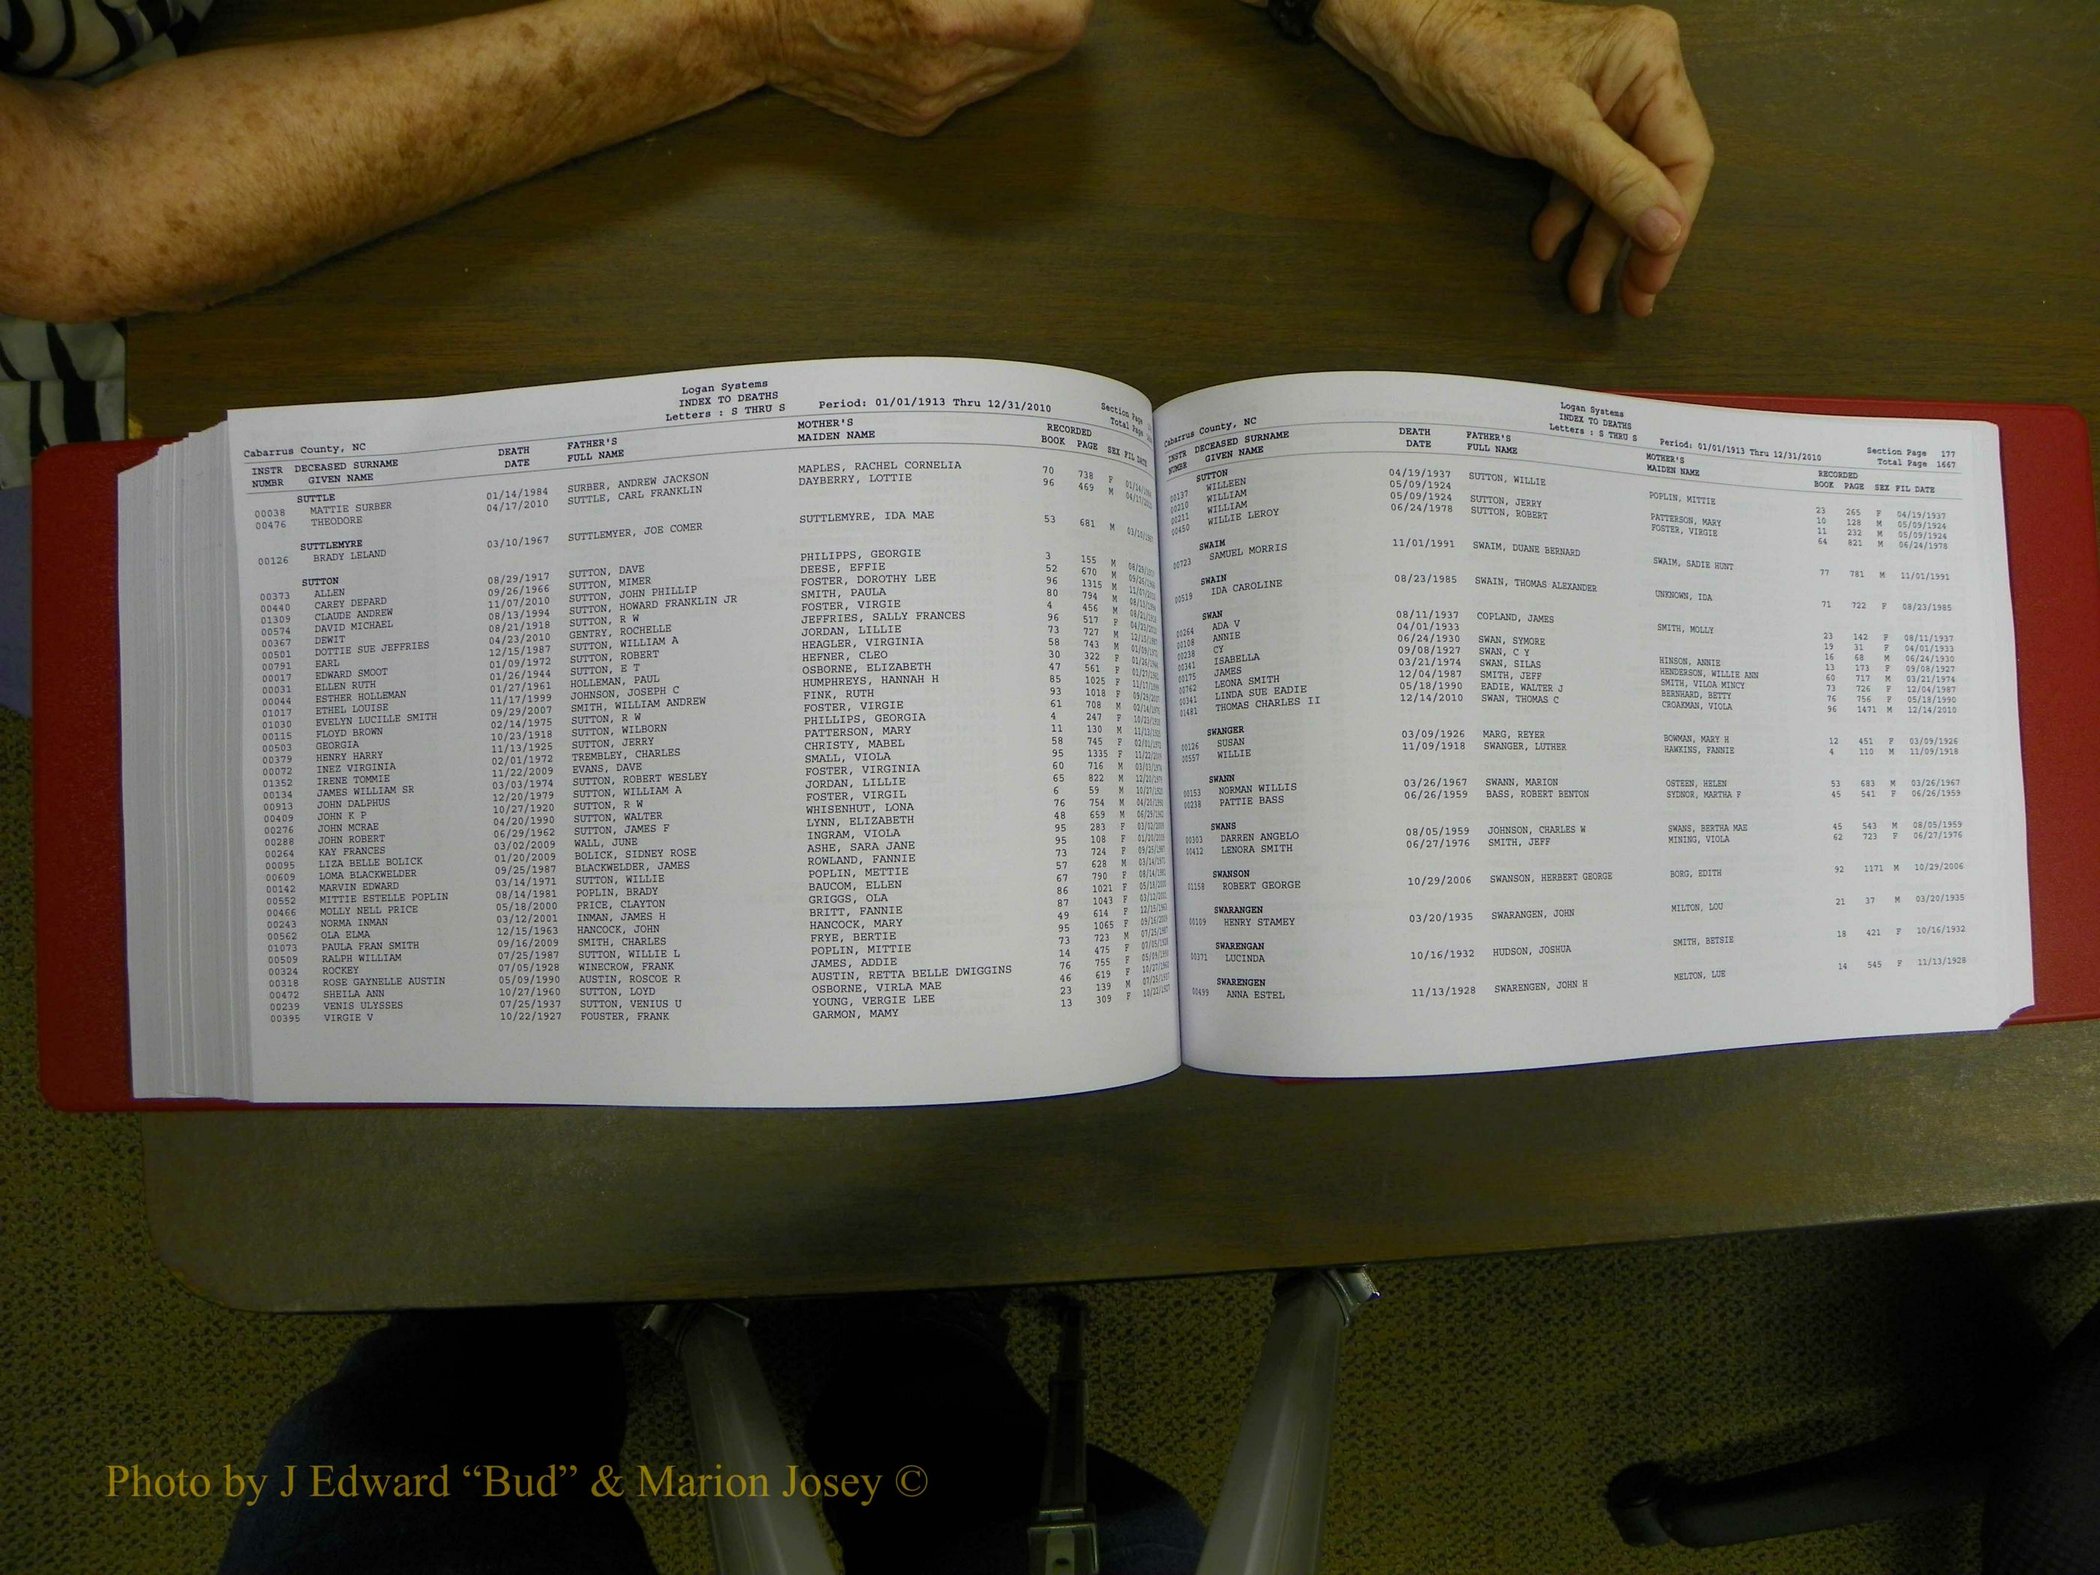 Logan Systems
INDEX TO DEATHS
Letters : S THRU S Period: 01/01/1913 Thru 12/31/2010
Section Page
Total Page
Cabarrus County, NC
INSTR DECEASED SURNAME DEATH FATHER'S MOTHER'S RECORDED
NUMBR GIVEN NAME DATE FULL NAME MAIDEN NAME BOOK PAGE SEX FIL DATE
SUTTLE
00038 MATTIE SURBER 01/14/1984 SURBER, ANDREW JACKSON MAPLES, RACHEL CORNELIA 70 738 F 01/14/1984
00476 THEODORE 04/17/2010 SUTTLE, CARL FRANKLIN DAYBERRY, LOTTIE 96 469 M 04/17/2010
SUTTLEMYRE
00126 BRADY LELAND 03/10/1967 SUTTLEMYER, JOE COMER SUTTLEMYRE, IDA MAE 53 681 M 03/10/1967
SUTTON
00373 ALLEN 08/29/1917 SUTTON, DAVE PHILIPPS, GEORGIE 3 155 M 08/29/1917
00440 CAREY DEPARD 09/26/1966 SUTTON, MIMER DEESE, EFFIE 52 670 M 09/26/1966
01309 CLAUDE ANDREW 11/07/2010 SUTTON, JOHN PHILLIP FOSTER, DOROTHY LEE 96 1315 M 11/07/2010
00574 DAVID MICHAEL 08/13/1994 SUTTON, HOWARD FRANKLIN JR SMITH, PAULA 80 794 M 08/13/1994
00367 DEWIT 08/21/1918 SUTTON, R W FOSTER, VIRGIE 4 456 M 08/21/1918
00501 DOTTIE SUE JEFFRIES 04/23/2010 GENTRY, ROCHELLE JEFFRIES, SALLY FRANCES 96 517 F 04/23/2010
00791 EARL 12/15/1987 SUTTON, WILLIAM A JORDAN, LILLIE 73 727 M 12/15/1987
00017 EDWARD SMOOT 01/09/1972 SUTTON, ROBERT HEAGLER, VIRGINIA 58 743 M 01/09/1972
00031 ELLEN RUTH 01/26/1944 SUTTON, E T HEFNER, CLEO 30 322 F 01/26/1944
00044 ESTHER HOLLEMAN 01/27/1961 HOLLEMAN, PAUL OSBORNE, ELIZABETH 47 561 F 01/27/1961
01017 ETHEL LOUISE 11/17/1999 JOHNSON, JOSEPH C HUMPHREYS, HANNAH H 85 1025 F 11/17/1999
01030 EVELYN LUCILLE SMITH 09/29/2007 SMITH, WILLIAM ANDREW FINK, RUTH 93 1018 F 09/29/2007
00115 FLOYD BROWN 02/14/1975 SUTTON, R W FOSTER, VIRGIE 61 708 M 02/14/1975
00503 GEORGIA 10/23/1918 SUTTON, WILBORN PHILLIPS, GEORGIA 4 247 F 10/23/1918
00379 HENRY HARRY 11/13/1925 SUTTON, JERRY PATTERSON, MARY 11 130 M 11/13/1925
00072 INEZ VIRGINIA 02/01/1972 TREMBLEY, CHARLES CHRISTY, MABEL 58 745 F 02/01/1972
01352 IRENE TOMMIE 11/22/2009 EVANS, DAVE SMALL, VIOLA 95 1335 F 11/22/2009
00134 JAMES WILLIAM SR 03/03/1974 SUTTON, ROBERT WESLEY FOSTER, VIRGINIA 60 716 M 03/03/1974
00913 JOHN DALPHUS 12/20/1979 SUTTON, WILLIAM A JORDAN, LILLIE 65 822 M 12/20/1979
00409 JOHN K P 10/27/1920 SUTTON, R W FOSTER, VIRGIL 6 59 M 10/27/1920
00276 JOHN MCRAE 04/20/1990 SUTTON, WALTER WHISENHUT, LONA 76 754 M 04/20/1990
00288 JOHN ROBERT 06/29/1962 SUTTON, JAMES F LYNN, ELIZABETH 48 659 M 06/29/1962
00264 KAY FRANCES 03/02/2009 WALL, JUNE INGRAM, VIOLA 95 283 F 03/02/2009
00095 LIZA BELLE BOLICK 01/20/2009 BOLICK, SIDNEY ROSE ASHE, SARA JANE 95 108 F 01/20/2009
00609 LOMA BLACKWELDER 09/25/1987 BLACKWELDER, JAMES ROWLAND, FANNIE 73 724 F 09/25/1987
00142 MARVIN EDWARD 03/14/1971 SUTTON, WILLIE POPLIN, METTIE 57 628 M 03/14/1971
00552 MITTIE ESTELLE POPLIN 08/14/1981 POPLIN, BRADY BAUCOM, ELLEN 67 790 F 08/14/1981
00466 MOLLY NELL PRICE 05/18/2000 PRICE, CLAYTON GRIGGS, OLA 86 1021 F 05/18/2000
00243 NORMA INMAN 03/12/2001 INMAN, JAMES H BRITT, FANNIE 87 1043 F 03/12/2001
00562 OLA ELMA 12/15/1963 HANCOCK, JOHN HANCOCK, MARY 49 614 F 12/15/1963
01073 PAULA FRAN SMITH 09/16/2009 SMITH, CHARLES FRYE, BERTIE 95 1065 F 09/16/2009
00509 RALPH WILLIAM 07/25/1987 SUTTON, WILLIE L POPLIN, MITTIE 73 723 M 07/25/1987
00324 ROCKEY 07/05/1928 WINECROW, FRANK JAMES, ADDIE 14 475 F 07/05/1928
00318 ROSE GAYNELLE AUSTIN 05/09/1990 AUSTIN, ROSCOE R AUSTIN, RETTA BELLE DWIGGINS 76 755 F 05/09/1990
00472 SHEILA ANN 10/27/1960 SUTTON, LOYD OSBORNE, VIRLA MAE 46 619 F 10/27/1960
00239 VENIS ULYSSES 07/25/1937 SUTTON, VENIUS U YOUNG, VERGIE LEE 23 139 M 07/25/1937
00395 VIRGIE V 10/22/1927 FOUSTER, FRANK GARMON, MAMY 13 309 F 10/22/1927
Logan Systems
INDEX TO DEATHS
Letters : S THRU S Period: 01/01/1913 Thru 12/31/2010
Section Page 177
Total Page 1667
Cabarrus County, NC
INSTR DECEASED SURNAME DEATH FATHER'S MOTHER'S RECORDED
NUMBR GIVEN NAME DATE FULL NAME MAIDEN NAME BOOK PAGE SEX FIL DATE
SUTTON
00137 WILLEEN 04/19/1937 SUTTON, WILLIE POPLIN, MITTIE 23 265 F 04/19/1937
00210 WILLIAM 05/09/1924 10 128 M 05/09/1924
00211 WILLIAM 05/09/1924 SUTTON, JERRY PATTERSON, MARY 11 232 M 05/09/1924
00450 WILLIE LEROY 06/24/1978 SUTTON, ROBERT FOSTER, VIRGIE 64 821 M 06/24/1978
SWAIM
00723 SAMUEL MORRIS 11/01/1991 SWAIM, DUANE BERNARD SWAIM, SADIE HUNT 77 781 M 11/01/1991
SWAIN
00519 IDA CAROLINE 08/23/1985 SWAIN, THOMAS ALEXANDER UNKNOWN, IDA 71 722 F 08/23/1985
SWAN
00264 ADA V 08/11/1937 COPLAND, JAMES SMITH, MOLLY 23 142 F 08/11/1937
00108 ANNIE 04/01/1933 19 31 F 04/01/1933
00238 CY 06/24/1930 SWAN, SYMORE 16 68 M 06/24/1930
00341 ISABELLA 09/08/1927 SWAN, C Y HINSON, ANNIE 13 173 F 09/08/1927
00175 JAMES 03/21/1974 SWAN, SILAS HENDERSON, WILLIE ANN 60 717 M 03/21/1974
00762 LEONA SMITH 12/04/1987 SMITH, JEFF SMITH, VILOA MINCY 73 726 F 12/04/1987
00341 LINDA SUE EADIE 05/18/1990 EADIE, WALTER J BERNHARD, BETTY 76 756 F 05/18/1990
01481 THOMAS CHARLES II 12/14/2010 SWAN, THOMAS C CROAKMAN, VIOLA 96 1471 M 12/14/2010
SWANGER
00126 SUSAN 03/09/1926 MARG, REYER BOWMAN, MARY H 12 451 F 03/09/1926
00557 WILLIE 11/09/1918 SWANGER, LUTHER HAWKINS, FANNIE 4 110 M 11/09/1918
SWANN
00153 NORMAN WILLIS 03/26/1967 SWANN, MARION OSTEEN, HELEN 53 683 M 03/26/1967
00238 PATTIE BASS 06/26/1959 BASS, ROBERT BENTON SYDNOR, MARTHA F 45 541 F 06/26/1959
SWANS
00303 DARREN ANGELO 08/05/1959 JOHNSON, CHARLES W SWANS, BERTHA MAE 45 543 M 08/05/1959
00412 LENORA SMITH 06/27/1976 SMITH, JEFF MINING, VIOLA 62 723 F 06/27/1976
SWANSON
01158 ROBERT GEORGE 10/29/2006 SWANSON, HERBERT GEORGE BORG, EDITH 92 1171 M 10/29/2006
SWARANGEN
00109 HENRY STAMEY 03/20/1935 SWARANGEN, JOHN MILTON, LOU 21 37 M 03/20/1935
SWARENGAN
00371 LUCINDA 10/16/1932 HUDSON, JOSHUA SMITH, BETSIE 18 421 F 10/16/1932
SWARENGEN
00499 ANNA ESTEL 11/13/1928 SWARENGEN, JOHN H MELTON, LUE 14 545 F 11/13/1928
Photo by J Edward “Bud” & Marion Josey ©